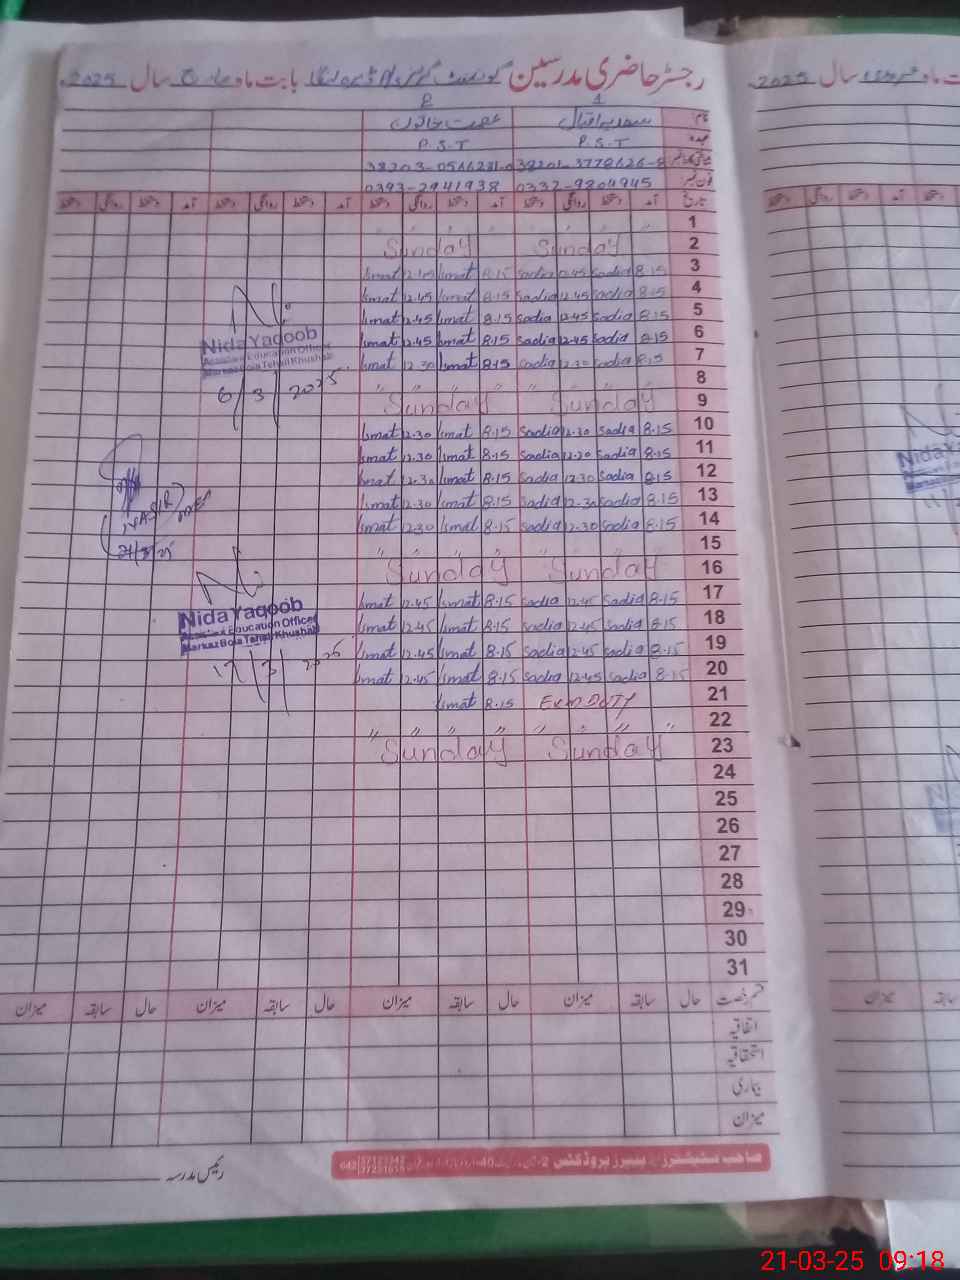 رجسٹر حاضری مدرسین گورنمنٹ گرلز بابت ماہ مارچ سال 2025ء
1 2
نام سعدیہ اقبال عصمت خاتون
عہدہ P.S.T P.S.T
38201-3778626-8 38203-0546281-0
فون نمبر 0332-9204945 0393-2941938
تاریخ آمد دستخط روانگی دستخط آمد دستخط روانگی دستخط آمد دستخط روانگی دستخط آمد دستخط روانگی دستخط
1
2 Sunday Sunday
3 8.15 Sadia 12.45 Sadia 8.15 Ismat 12.45 Ismat
4 8.15 Sadia 12.45 Sadia 8.15 Ismat 12.45 Ismat
5 8.15 Sadia 12.45 Sadia 8.15 Ismat 12.45 Ismat
6 8.15 Sadia 12.45 Sadia 8.15 Ismat 12.45 Ismat
7 8.15 Sadia 12.30 Sadia 8.15 Ismat 12.30 Ismat
8
9 Sunday Sunday
10 8.15 Sadia 12.30 Sadia 8.15 Ismat 12.30 Ismat
11 8.15 Sadia 12.30 Sadia 8.15 Ismat 12.30 Ismat
12 8.15 Sadia 12.30 Sadia 8.15 Ismat 12.30 Ismat
13 8.15 Sadia 12.30 Sadia 8.15 Ismat 12.30 Ismat
14 8.15 Sadia 12.30 Sadia 8.15 Ismat 12.30 Ismat
15
16 Sunday Sunday
17 8.15 Sadia 12.45 Sadia 8.15 Ismat 12.45 Ismat
18 8.15 Sadia 12.45 Sadia 8.15 Ismat 12.45 Ismat
19 8.15 Sadia 12.45 Sadia 8.15 Ismat 12.45 Ismat
20 8.15 Sadia 12.45 Sadia 8.15 Ismat 12.45 Ismat
21 Exam DUTY 8.15 Ismat
22
23 Sunday Sunday
24
25
26
27
28
29
30
31
Nida Yaqoob
Assistant Education Officer
Markaz Bola Tehsil Khushab
6/3/2025
(NASIR)
21/3/25
Nida Yaqoob
Assistant Education Officer
Markaz Bola Tehsil Khushab
17/3/2025
قسم رخصت حال سابقہ میزان حال سابقہ میزان حال سابقہ میزان حال سابقہ میزان
اتفاقیہ
استحقاقیہ
بیماری
میزان
صاحب سٹیشنرز پیپرز پروڈکٹس
رئیس مدرسہ
ت ماہ فروری سال 2025ء
دستخط آمد دستخط روانگی دستخط
Nida Ya
سابقہ میزان
21-03-25 09:18